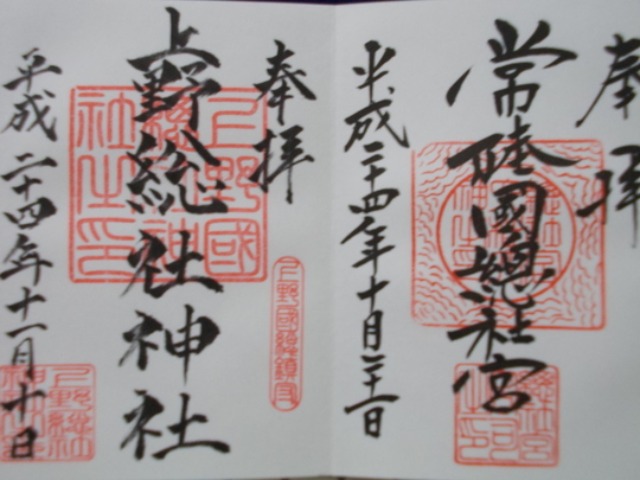 奉拝
常陸國總社宮
平成二十四年十月二十一日
奉拝
上野総社神社
平成二十四年十一月十日
上野國総社神社之印
上野國総鎮守